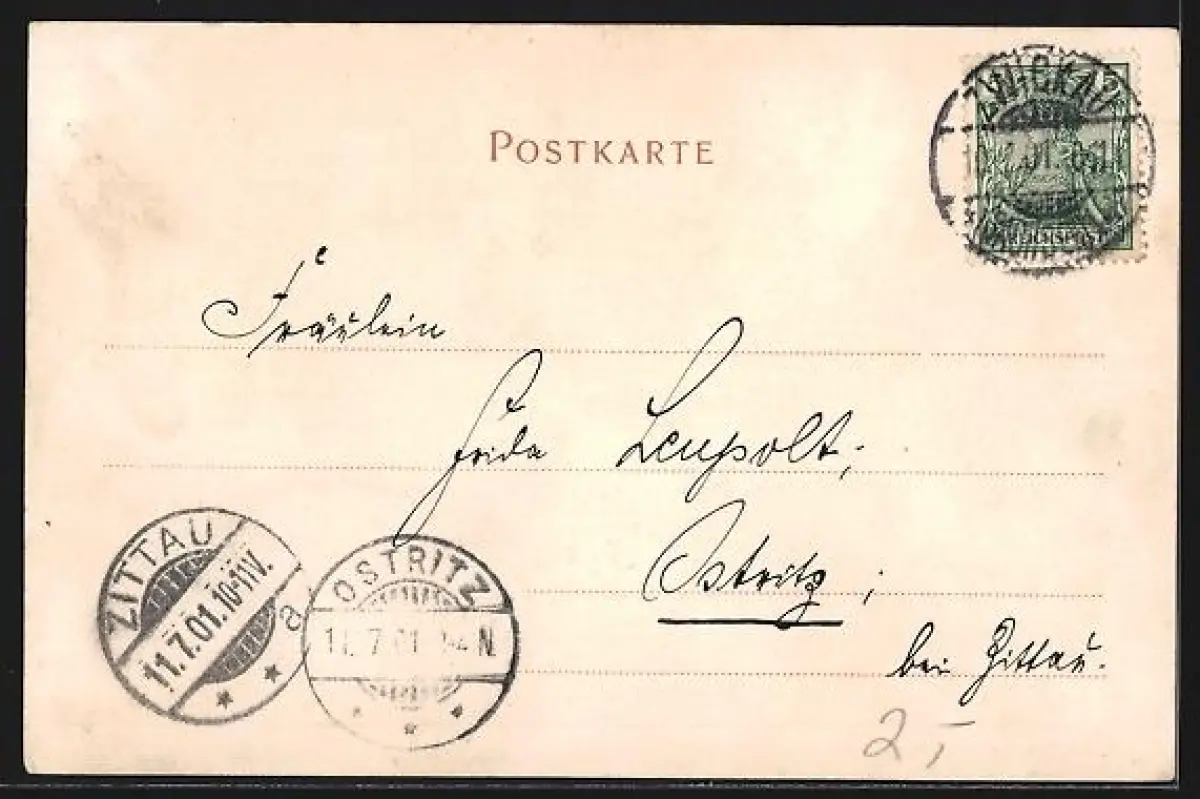 POSTKARTE
ZWICKAU
REICHSPOST
Fräulein
Frida Leupolt,
Ostritz,
bei Zittau.
ZITTAU
11.7.01.10-11V.
a
OSTRITZ
11. 7 01 N
2,-